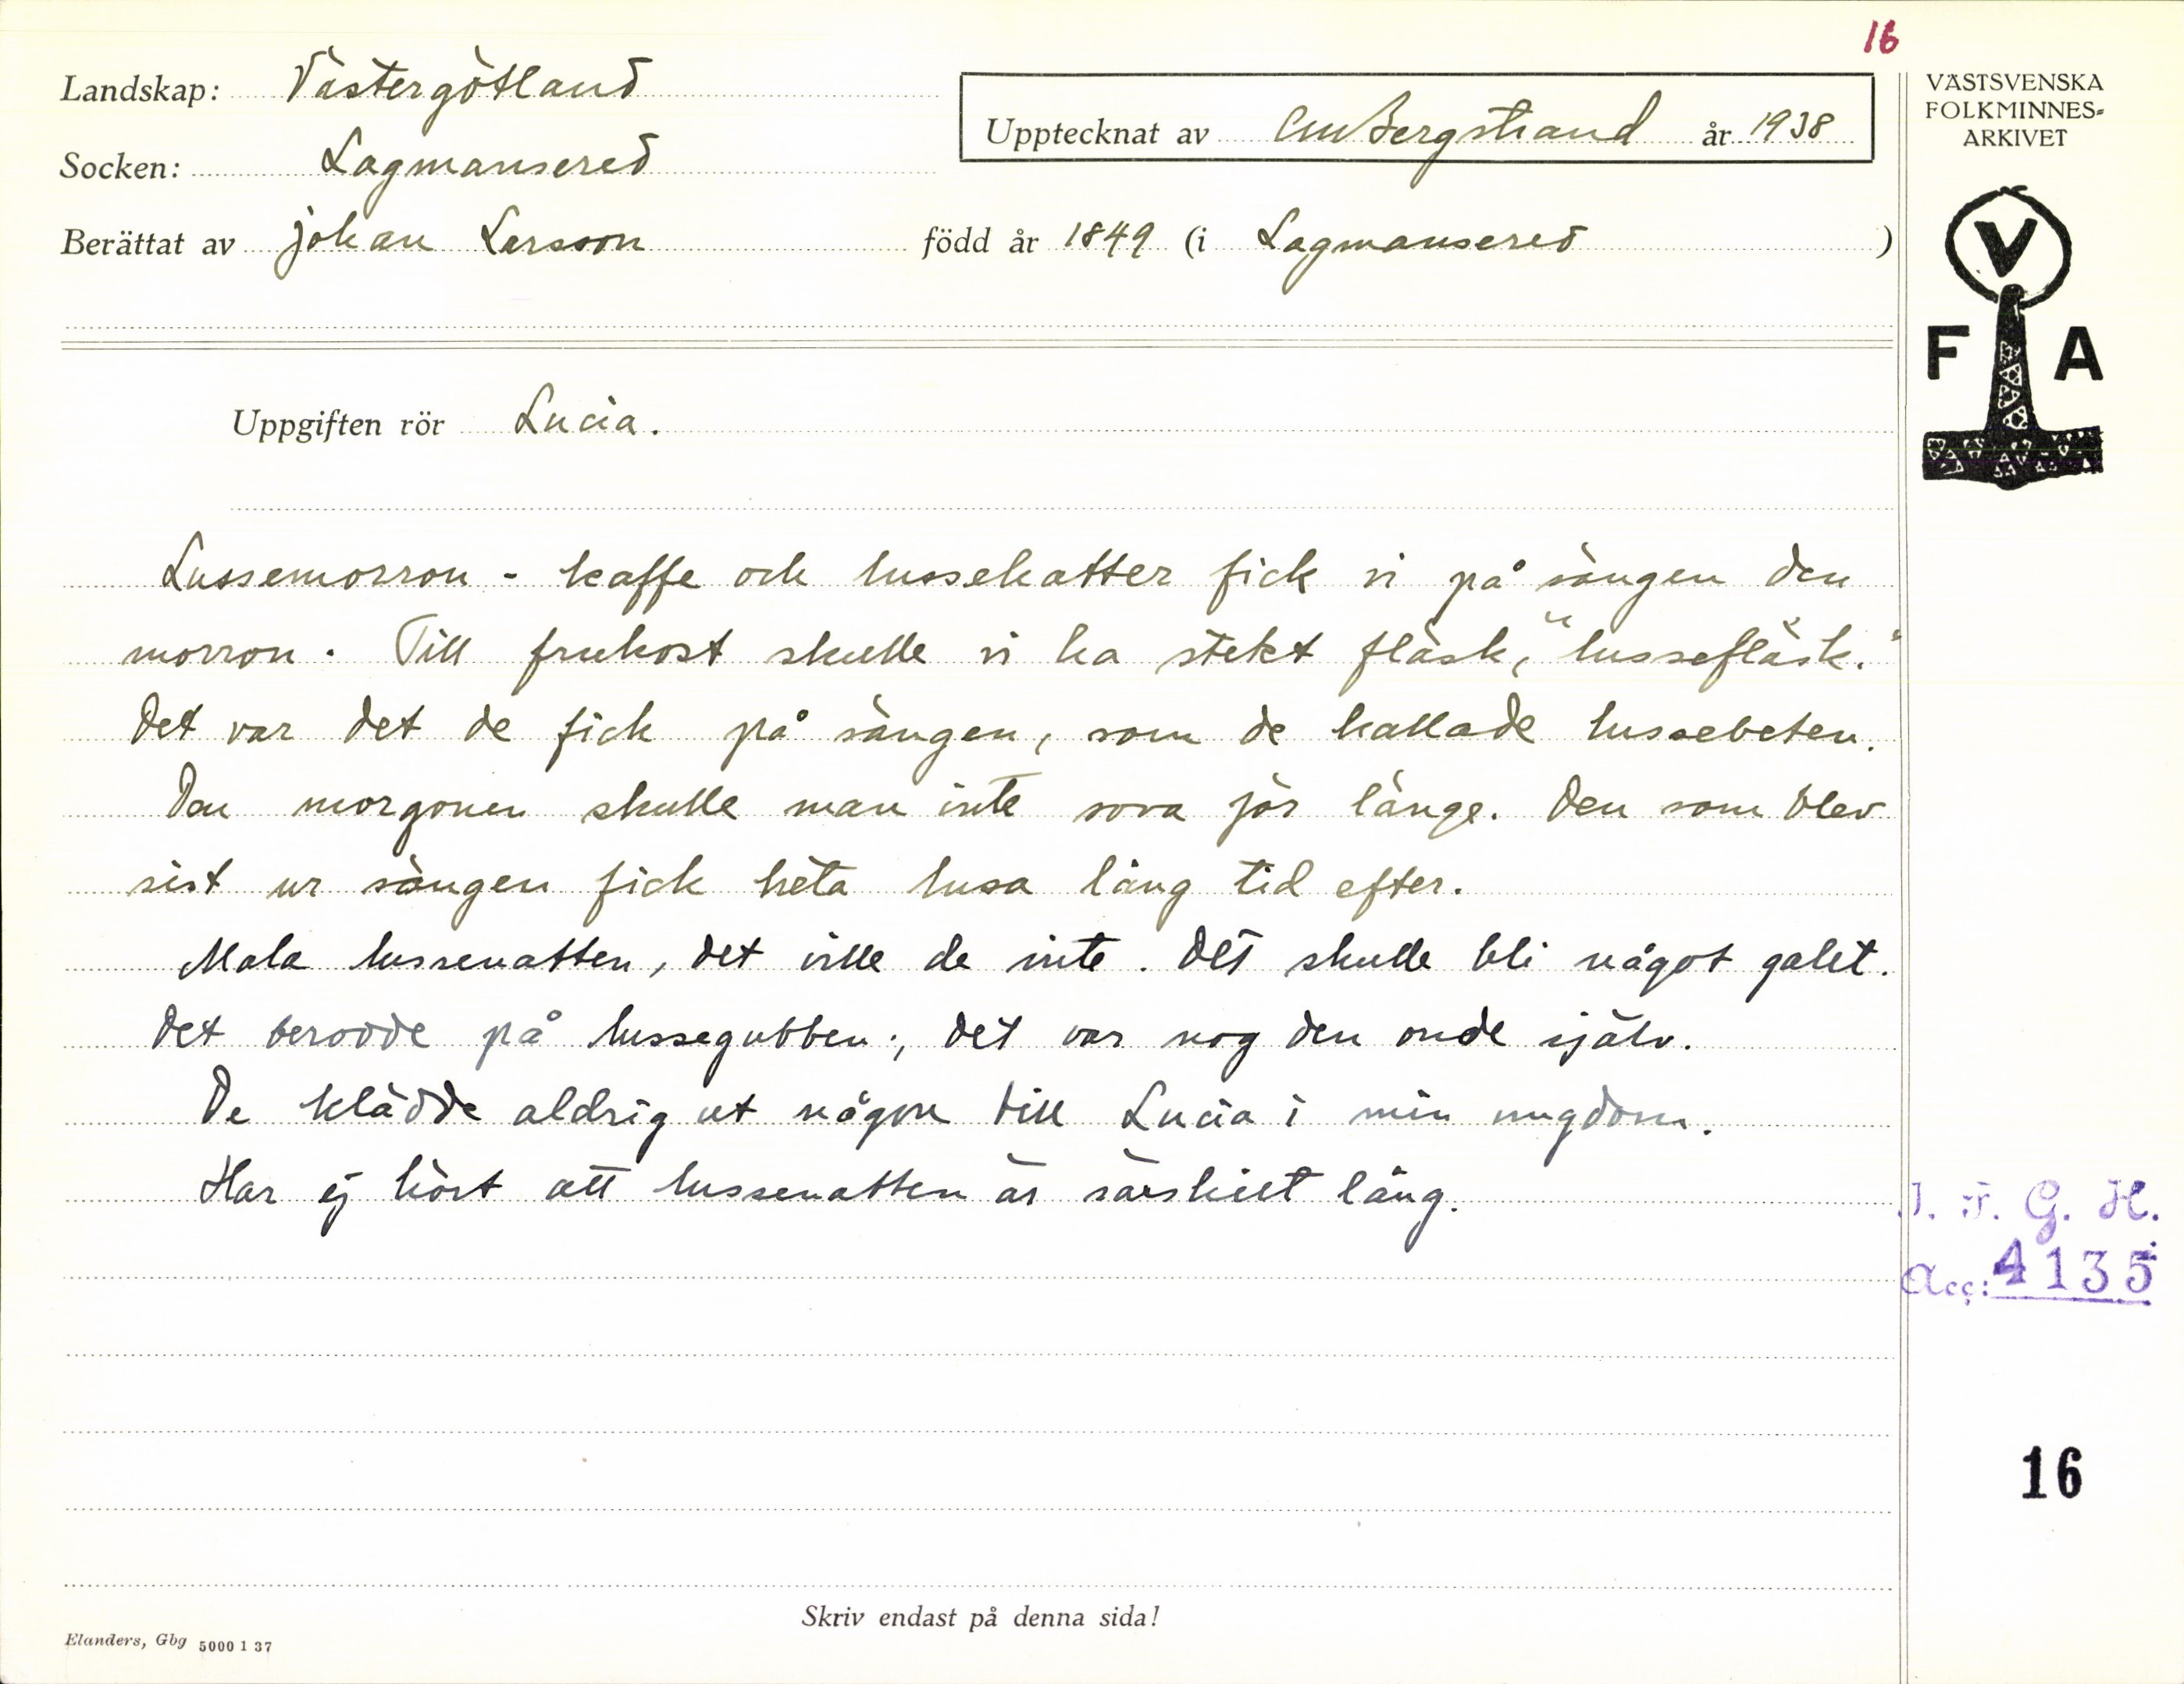 16
Landskap: Västergötland
Upptecknat av CM Bergstrand år 1938
Socken: Lagmansered
Berättat av Johan Larsson född år 1849 (i Lagmansered )
VÄSTSVENSKA
FOLKMINNES=
ARKIVET
V
F A
Uppgiften rör Lucia.
Lussemorron - kaffe och lussekatter fick vi på sängen den
morron. Till frukost skulle vi ha stekt fläsk, "lussefläsk."
Det var det de fick på sängen, som de kallade lussebeten.
Den morgonen skulle man inte sova för länge. Den som blev
sist ur sängen fick heta lusa lång tid efter.
Mala lussenatten, det ville de inte. Det skulle bli något galet.
Det berodde på lussegubben; det var nog den onde själv.
De klädde aldrig ut någon till Lucia i min ungdom.
Har ej hört att lussenatten är särskilt lång.
I. F. G. H.
Acc: 4135
16
Skriv endast på denna sida!
Elanders, Gbg 5000 1 37